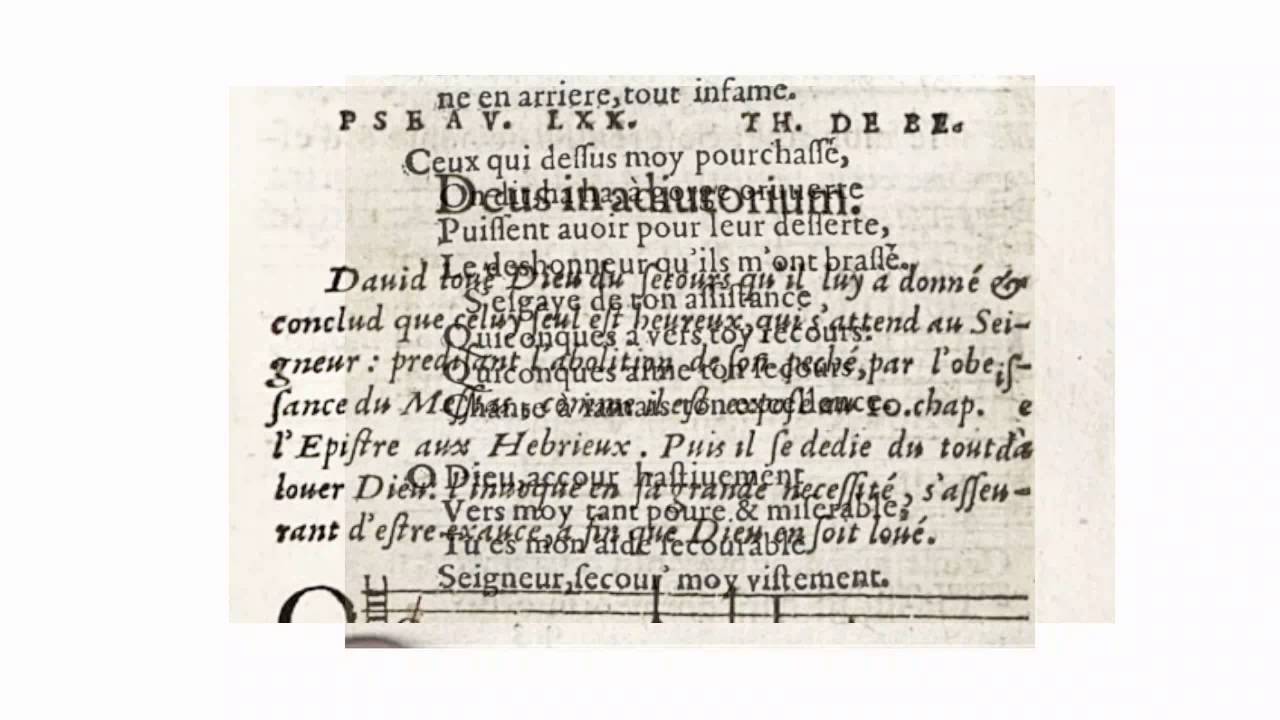 ne en arriere,tout infame.
PSEAV. LXX. TH. DE BE.
Ceux qui deſſus moy pourchaſſé,
Deus in adiutorium.
Puiſſent auoir pour leur deſſerte,
Le deshonneur qu'ils m'ont braſſé.
Dauid louë Dieu du ſecours qu'il luy a donné &
S'eſgaye de ton aſſiſtance,
conclud que celuy ſeul eſt heureux, qui s'attend au Sei-
Quiconques a vers toy recours:
gneur : prediſant l'abolition de ſon peché,par l'obeiſ-
Quiconques aime ton ſecours,
ſance du Meſſias, comme il eſt expoſé au 10.chap. e
Chante à iamais ton
l'Epiſtre aux Hebrieux. Puis il ſe dedie du tout
O Dieu,accour haſtiuement
louer Dieu: l'inuoque en ſa grande neceſſité, s'aſſeu-
Vers moy tant poure & miſerable,
rant d'eſtre exaucé,à fin que Dieu en ſoit loué.
Tu es mon aide ſecourable
Seigneur,ſecour' moy viſtement.